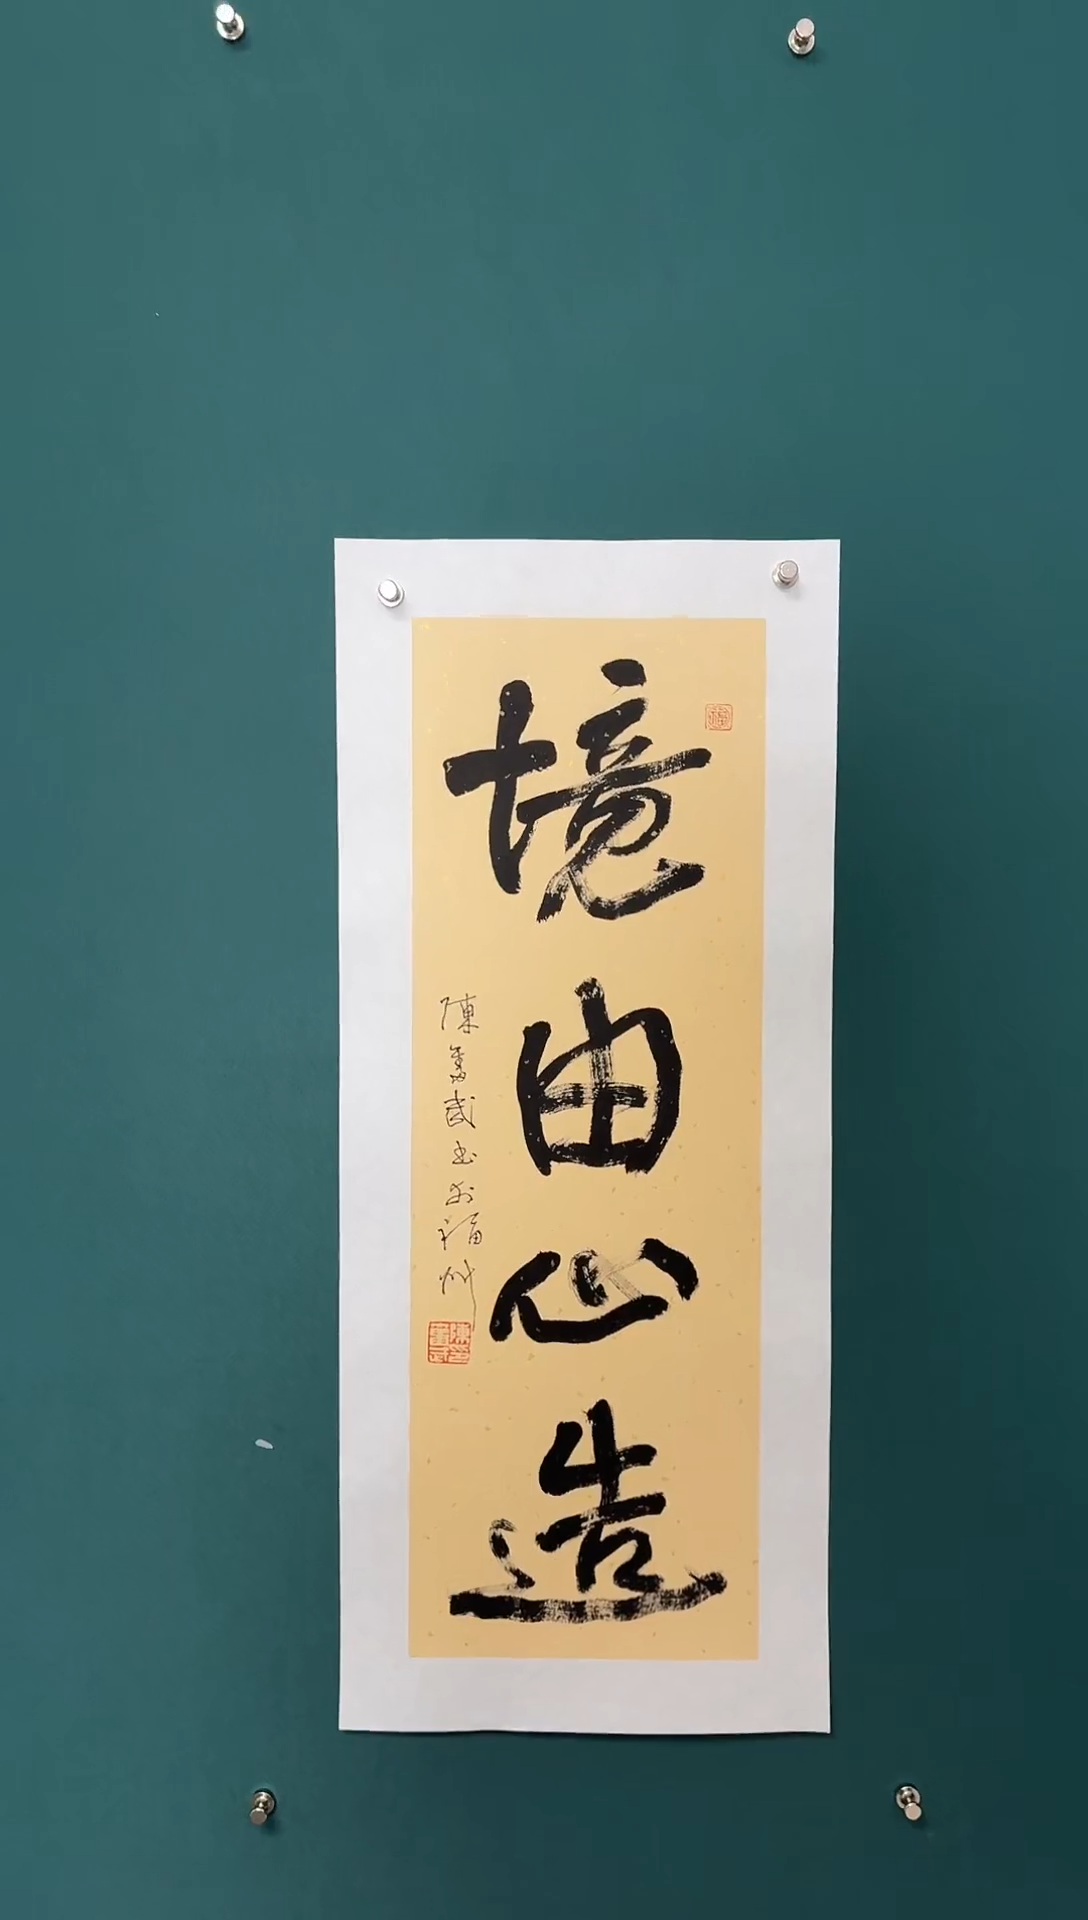 境由心造
陳奮武书於福州